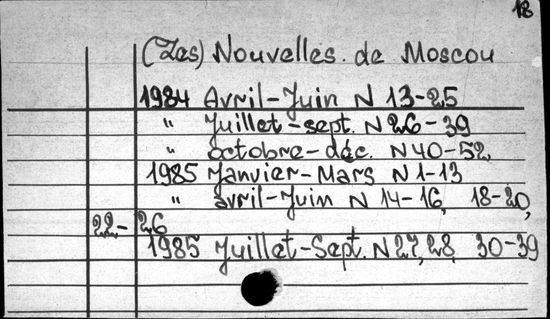 18
(Les) Nouvelles de Moscou
1984 Avril-Juin N 13-25
" Juillet-sept. N 26-39
" octobre-déc. N 40-52
1985 Janvier-Mars N 1-13
" avril-Juin N 14-16, 18-20,
22-26
1985 Juillet-Sept. N 27, 28, 30-39